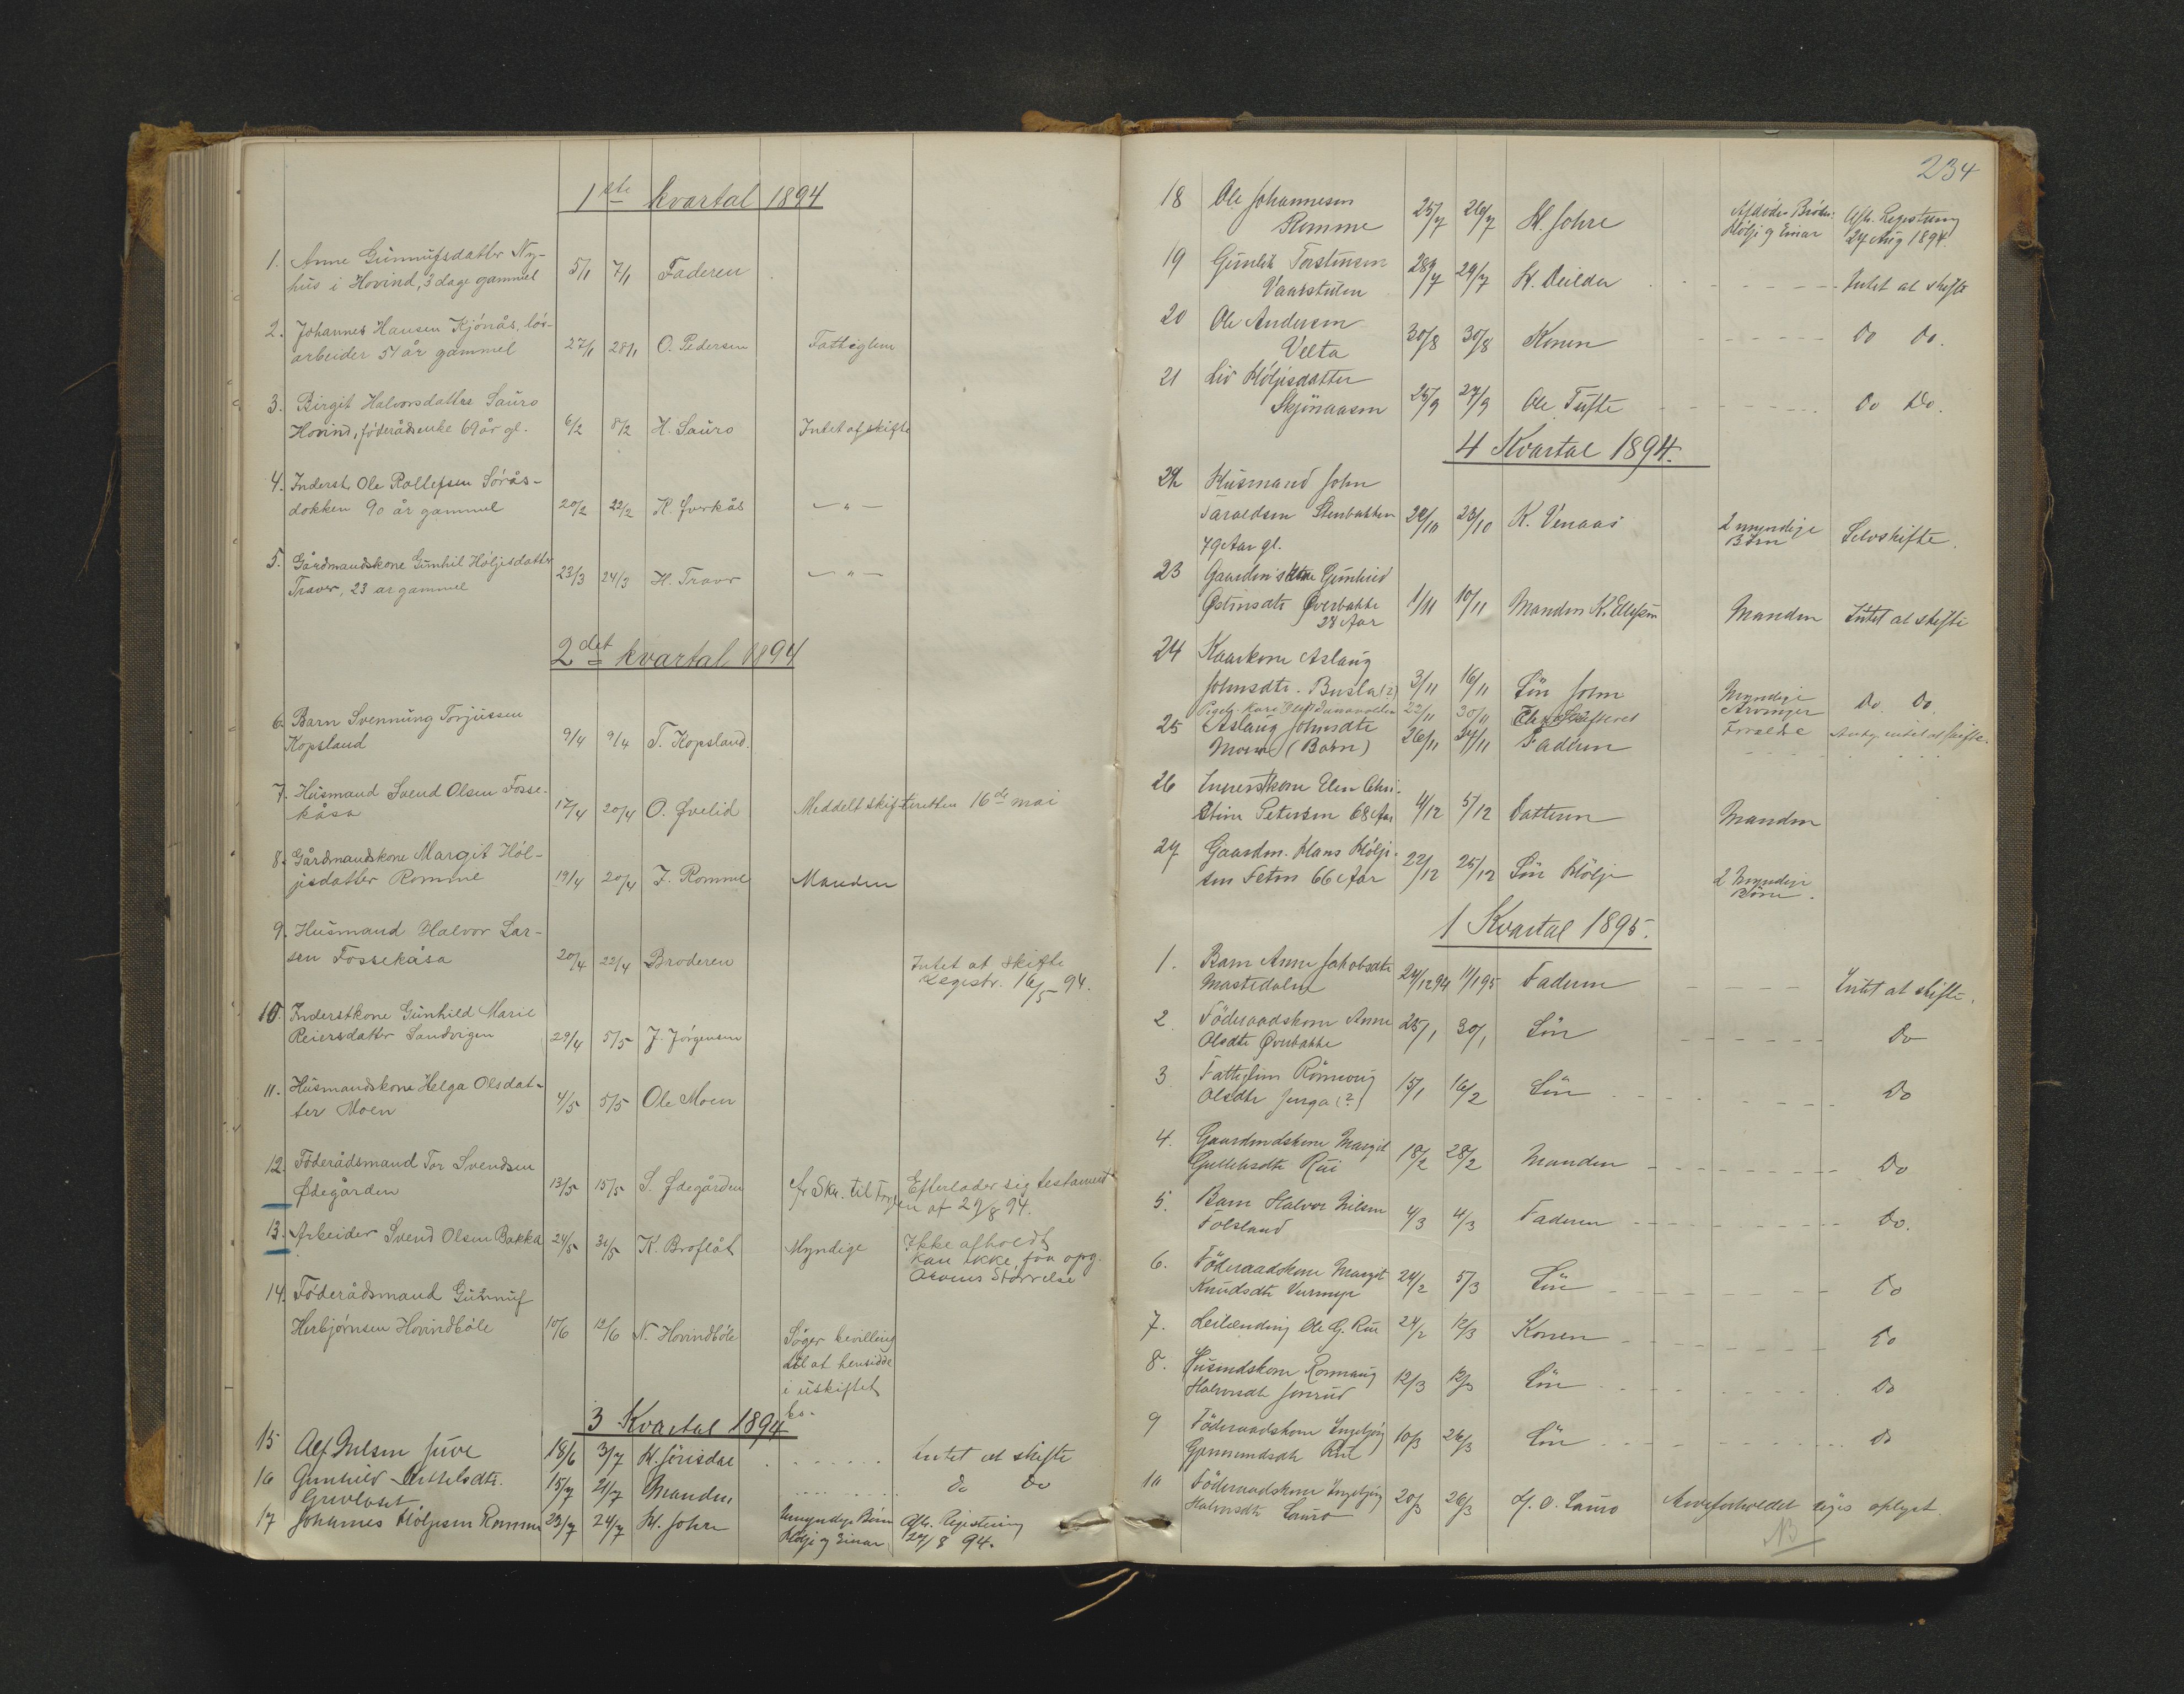 1ste kvartal 1894
1. Anne Gunnufsdatter Ny-
hus i Hovind, 3 dage gammel 5/1 7/1 Faderen
2. Johannes Hansen Kjónås, lós-
arbeider 54 år gammel 27/1 28/1 O. Pedersen Fattiglem
3. Birgit Halvorsdatter Sauro
Hovind, fóderådsenke 69 år gl. 6/2 8/2 H. Sauro Intet at skifte
4. Inderst Ole Rollefsen Sórås-
dokken 90 år gammel 20/2 22/2 K. Sverkås — " —
5. Gårdmandskone Gunhil Hóljesdatter
Traver, 23 år gammel 23/3 24/3 H. Traver — " —
2det kvartal 1894
6. Barn Svennung Torjussen
Kopsland 9/4 9/4 T. Kopsland.
7. Husmand Svend Olsen Fosse-
kåsa 17/4 20/4 O. Øvelid Meddelt skifteretten 16de mai
8. Gårdmandskone Margit Hól-
jesdatter Romme 19/4 20/4 J. Romme Manden
9. Husmand Halvor Lar-
sen Fossekåsa 20/4 22/4 Broderen Intet at skifte
Registr. 16/5 94.
10. Inderstkone Gunhild Marie
Reiersdatter Sandvigen 29/4 5/5 J. Jórgensen
11. Husmandskone Helga Olsdat-
ter Moen 4/5 5/5 Ole Moen
12. Fóderådsmand Tor Svendsen
Ødegården 13/5 15/5 S. Ødegården cfr Skr. til Efterlader sig testament
af 29/8 94.
13. Arbeider Svend Olsen Bakka 24/5 31/5 K. Broflåt Myndige Ikke afholdt
Kan ikke faa opg.
Arvens Størrelse
14. Fóderådsmand Gunnuf
Herbjórnsen Hovindbóle 10/6 12/6 N. Hovindbóle Sóger bevilling
til at hensidde
i uskiftet
bo.
3 Kvartal 1894
15 Alf Nilsen Juve 18/6 3/7 H. Jórisdal Intet at skifte
16 Gunhild Kittelsdtr.
Grovloset 15/7 21/7 Manden do Do
17 Johannes Höljesen Romme 23/7 24/7 H. Johre Umyndige Börn Afh. Registrering
Hölje og Einar 24/8 94.
234
18 Ole Johannesen
Romme 25/7 26/7 H. Johre Afdødes Brödre Afh. Registrering
Hölje og Einar 24 Aug 1894.
19 Gunlik Torstensen
Vaarstulen 28/7 29/7 H. Deildar Intet at skifte
20 Ole Andersen
Velta 30/8 30/8 Konen Do Do.
21 Liv Höljesdatter
Skjönaasen 25/9 27/9 Ole Tufte Do Do.
4 Kvartal 1894.
22 Husmand John
Taraldsen Stenbakken 20/10 23/10 K. Venaas 2 myndige
Börn Selvskifte.
79 Aar gl.
23 Gaardm's kone Gunhild
Östensdtr Øverbakke 1/11 10/11 Manden K. Ellefsen Manden Intet at skifte
28 Aar
24 Kaarkone Aslaug
Johnsdtr. Busla (?) 3/11 16/11 Sön John Myndige
Arvinger Do. Do.
Pigeb. Kari 22/11 30/11 Forældre Antg. intet at skifte.
25 Aslaug Johnsdtr
Moen (Barn) 26/11 Faderen
26 Innerstkone Elen Chri-
stine Petersen 68 Aar 4/12 5/12 Datteren Manden
27 Gaardm. Hans Hölje-
sen Feten 66 Aar 22/12 25/12 Sön Hölje 2 Myndige
Börn.
1 Kvartal 1895.
1. Barn Anne Jakobsdtr
Mastedalen 24/12 94 11/1 95 Faderen Intet at skifte.
2. Föderaadskone Anne
Olsdtr Øverbakke 25/1 30/1 Sön Do
3 Fattiglem Rönnoug
Olsdtr Jurga (?) 15/1 16/2 Sön Do
4. Gaardmdskone Margit
Gullihsdtr Rui 18/2 28/2 Manden Do
5. Barn Halvor Nilsen
Folsland 4/3 4/3 Faderen Do.
6. Föderaadskone Margit
Knudsdtr Vermyr 24/2 5/3 Sön Do
7. Leilending Ole G. Rui 24/2 12/3 Konen Do
8. Husmdskone Ronnaug
Halvorsdtr Jonrud 12/3 12/3 Sön Do
9 Föderaadskone Ingebjörg
Gunmundsdtr Rui 10/3 26/3 Sön do
10 Föderaadskone Ingebjörg
Halvorsdtr Sauro 20/3 26/3 H. O. Sauro Arveforholdet siges oplyst.
NB